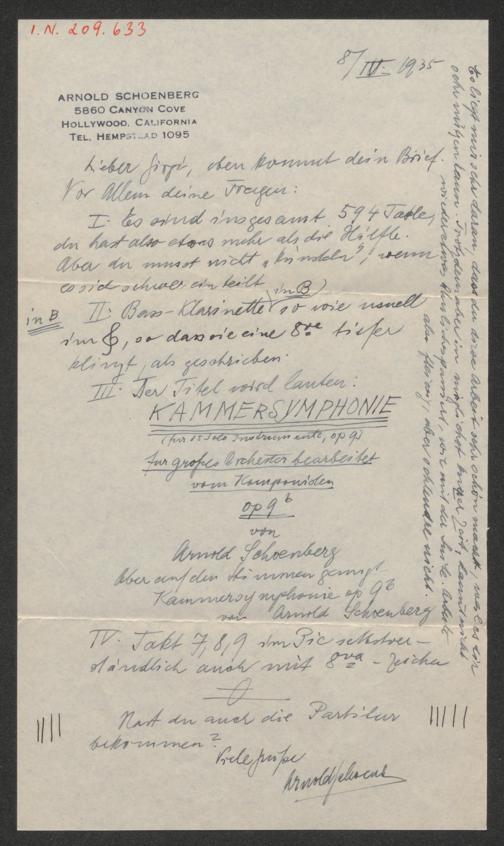 I.N. 209.633
8/IV. 1935
ARNOLD SCHOENBERG
5860 CANYON COVE
HOLLYWOOD, CALIFORNIA
TEL. HEMPSTEAD 1095
Lieber Görgi, eben kommt dein Brief.
Vor Allem deine Fragen:
I. Es sind insgesamt 594 Takte,
du hast also etwas mehr als die Hälfte.
Aber du musst nicht „künsteln", wenn
es sich schwer einteilt
II. Bass-Klarinette (in B) so wie usuell
in B
im 𝄞, so dass sie eine 8ve tiefer
klingt, als geschrieben.
III. Der Titel wird lauten:
KAMMERSYMPHONIE
(für 15 Solo Instrumente, op 9)
für großes Orchester bearbeitet
vom Komponisten
op 9b
von
Arnold Schoenberg
Aber auf den Stimmen genügt
Kammersymphonie op 9b
von Arnold Schoenberg
IV. Takt 7, 8, 9 im Pic selbstver-
ständlich auch mit 8va-Zeichen
Hast du auch die Partitur
bekommen?
Viele Grüße
Arnold Schoenberg
Es liegt mir sehr daran, dass du diese Arbeit sehr schön machst, was es ein
Trotzdem aber in möglichst kurzer Zeit, damit nicht
wieder etwas passiert, wie mit der Suite. Arbeite
also fleissig, aber schlaudre nicht.